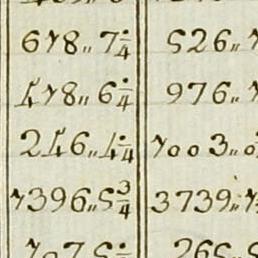 618,, 7 1/4 526,,
418,, 6 1/4 976,,
246,, 4 1/4 1003,,
1396,, 5 3/4 3739,,